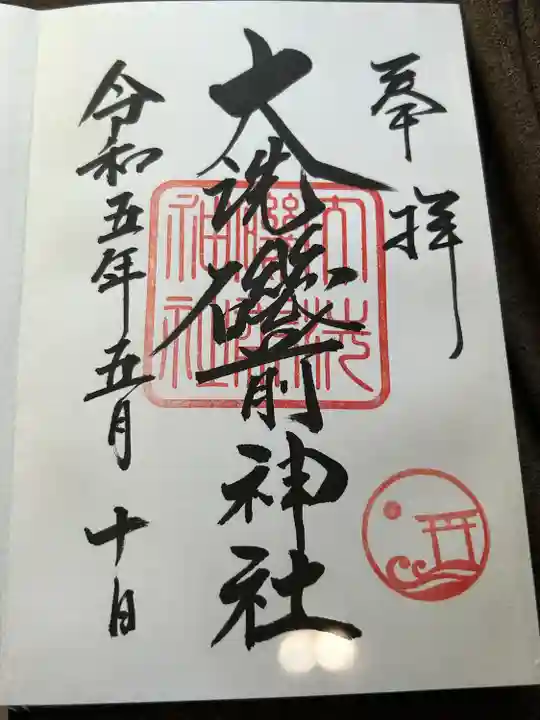 奉拝
大洗磯前神社
大洗磯前神社
令和五年五月十日